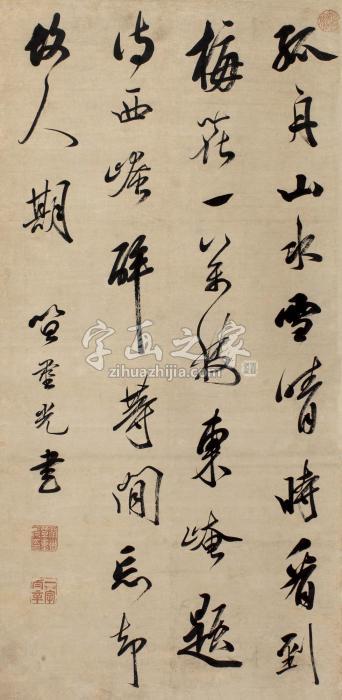 孤舟山水雪晴時看到
梅花一萬枝東崦題
詩西崦醉等閒忘却
故人期
笪重光書
字画之家
zihuazhijia.com